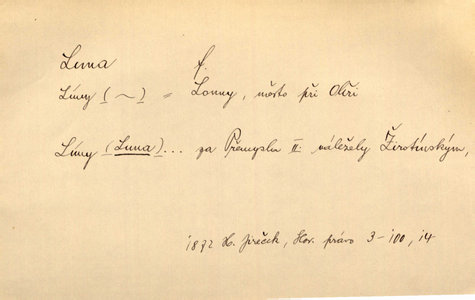 Luna f.
Louny (~) = Lonny, město při Ohři
Louny (Luna)... za Přemysla II: náležely Žirotínským,
1872 H. Jireček, Slov. právo 3-100, 14